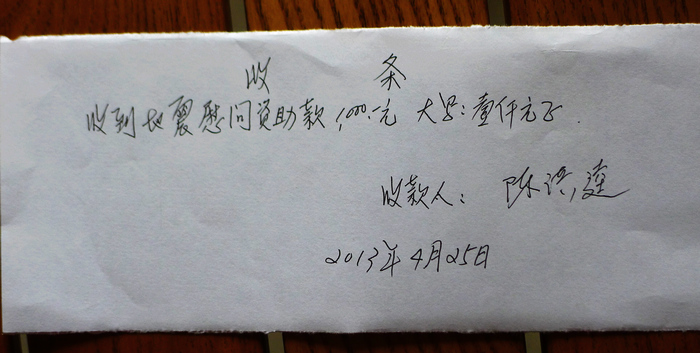 收 条
收到地震慰问资助款1,000.-元 大写:壹仟元正.
收款人: 陈
2013年4月25日